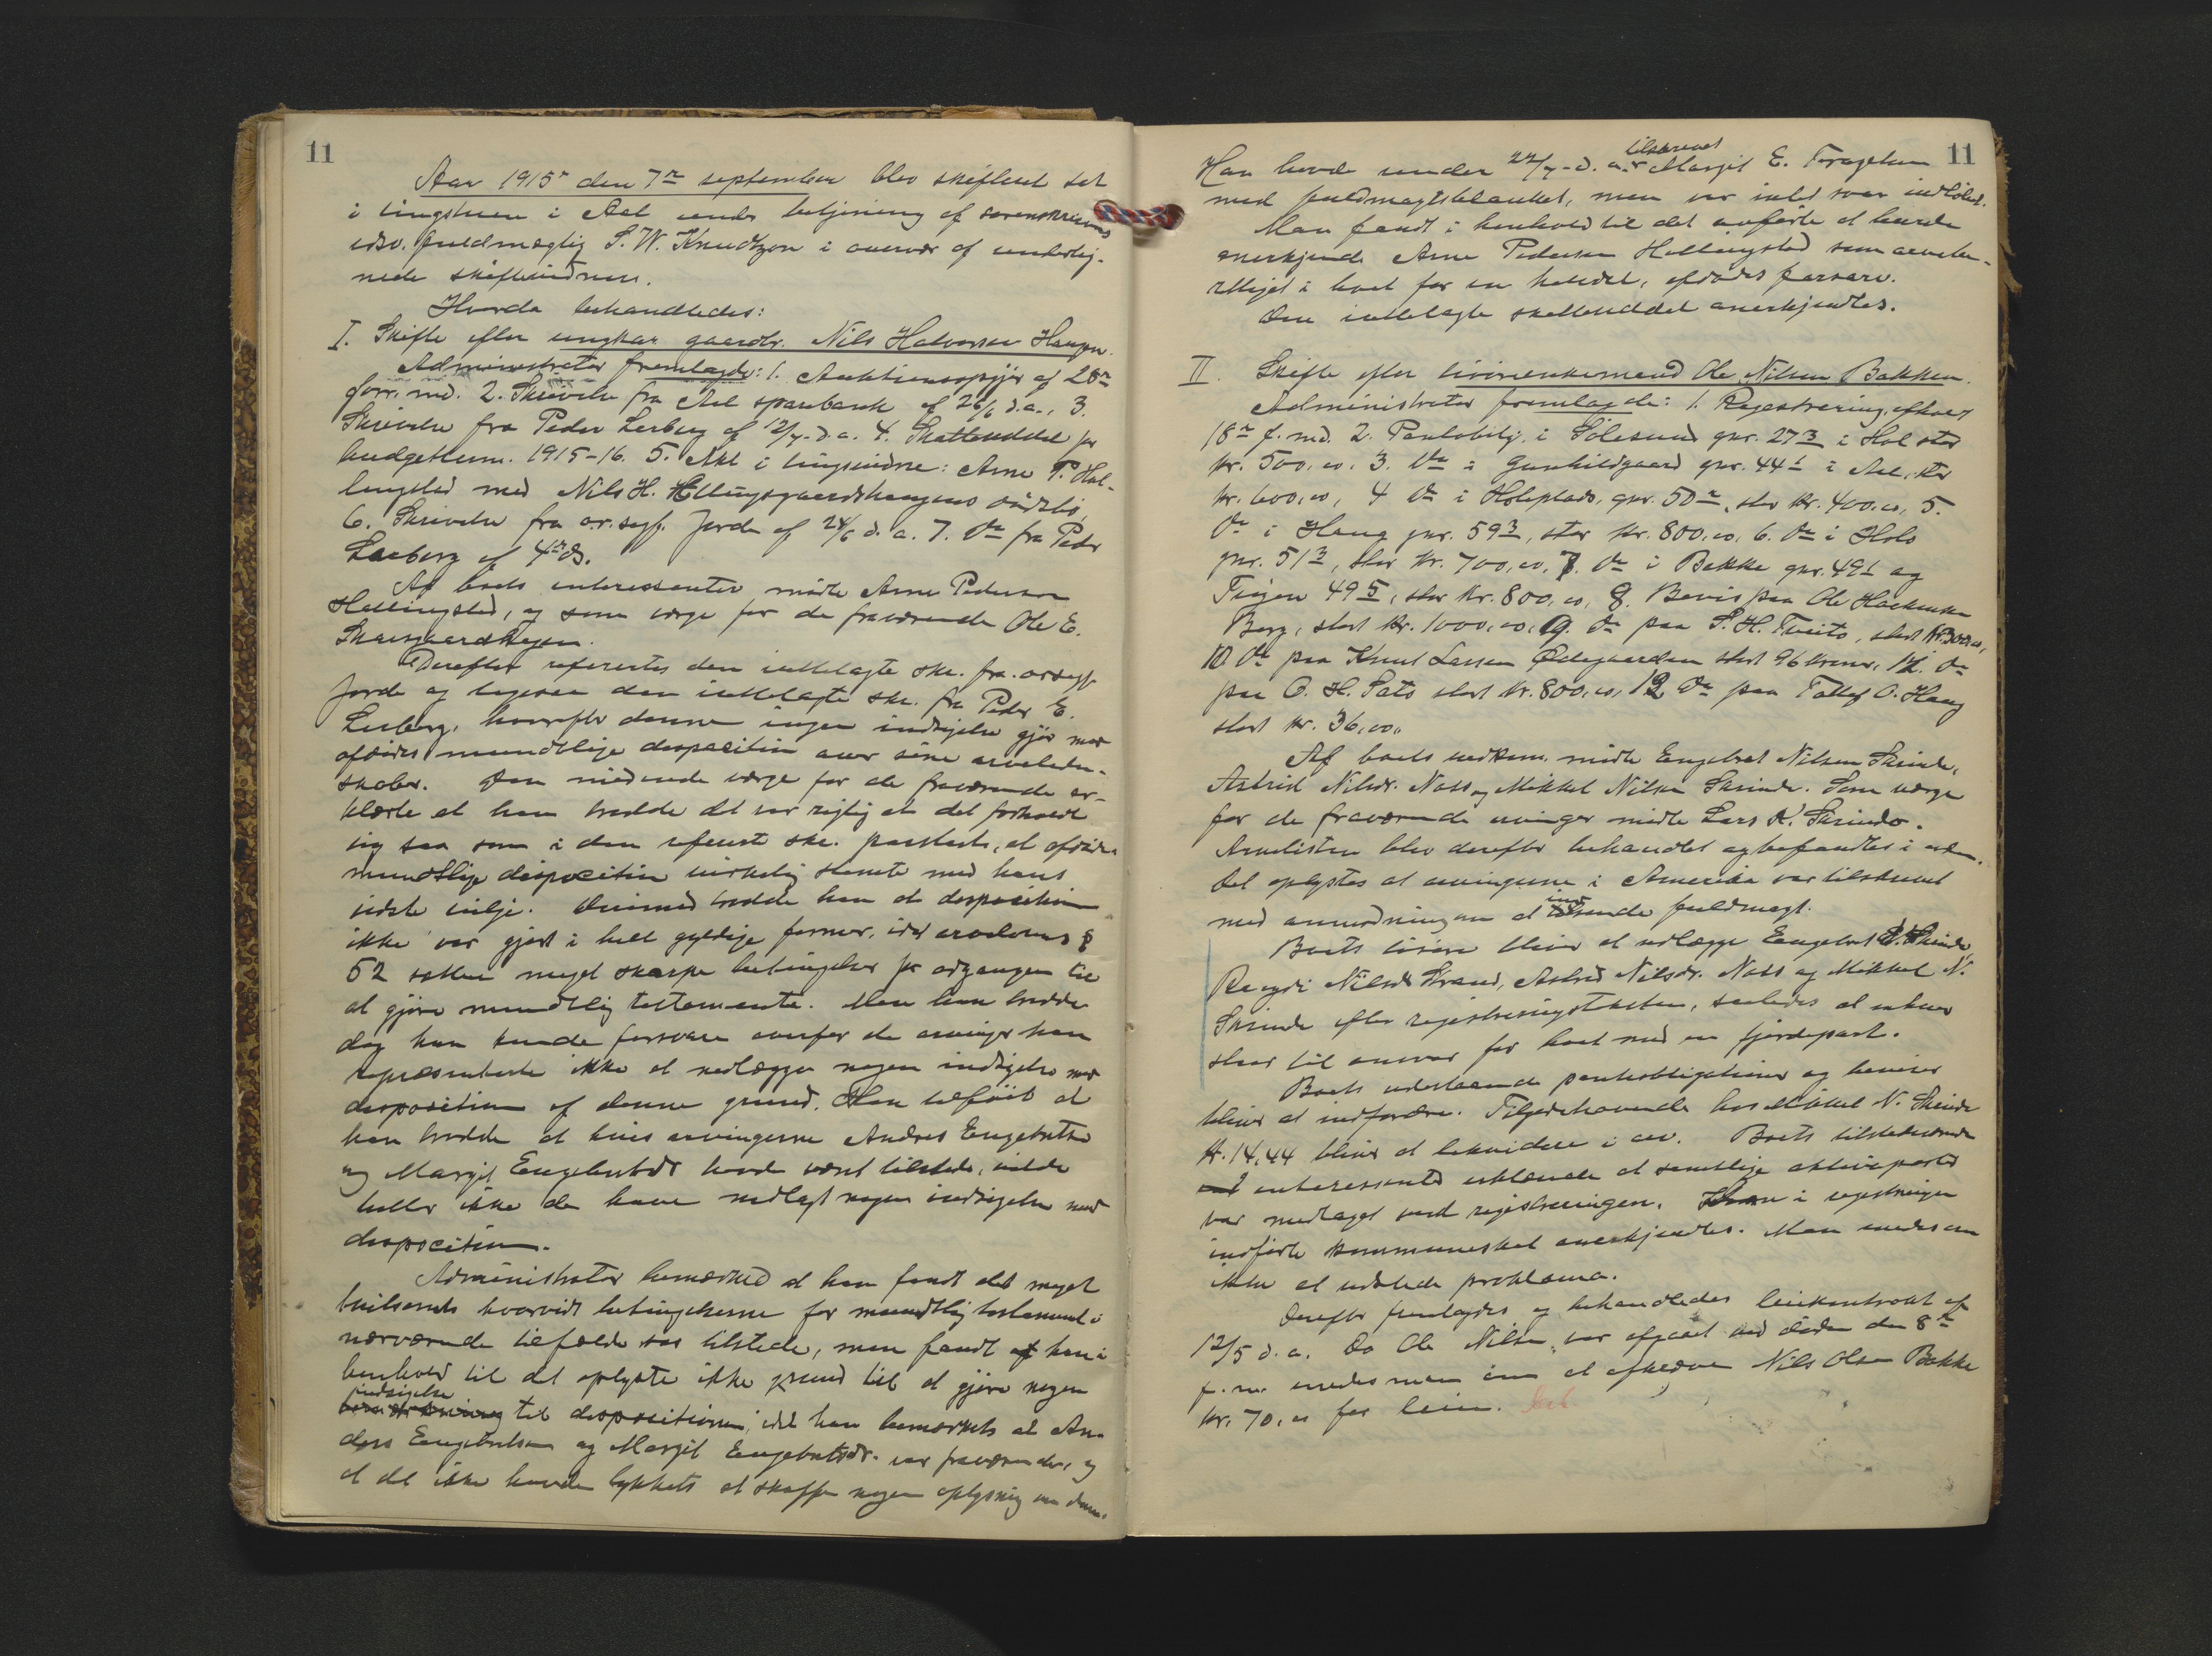 11
Aar 1915 den 7de september blev skifteret sat
i tingstuen i Aal under betjening af sorenskriverens
edsv. fuldmægtig S. W. Knudtzon i overvær af underteg-
nede skiftevidner.
Hvorda behandledes:
I. Skifte efter ungkar gaardbr. Nils Halvorsen Haugen.
Administrator fremlagde: 1. Auktionsopgjør af 28de
forr. md. 2. Skrivelse fra Aal sparebank af 26/6 d.a., 3.
Skrivelse fra Peder Lerberg af 12/7 d.a. 4. Skatteseddel for
budgettterm. 1915-16. 5. Akt i tingsvidne: Arne P. Hal-
lingstad med Nils H. Hellingsgaardshaugens dødsbo,
6. Skrivelse fra o.r.sagf. Jorde af 24/6 d.a. 7. Do fra Peder
Lerberg af 4de ds.
Af boets interessenter mødte Arne Pedersen
Hellingstad, og som verge for de fraværende Ole E.
Skarsgaardhagen.
Derefter refereertes den indlagte skr. fra orsagf.
Jorde og ligesaa den indlagte skr. fra Peder E.
Lerberg, hvorefter denne ingen indsigelse gjør mod
afdødes mundtlige disposition over sine arveleden-
skaber. Den mødende verge for de fraværende er-
klærte at han trodde det var rigtig at det forholdt
sig saa som i den refererte skr. paastaaet, at afdødes
mundtlige disposition virkelig stemte med hans
sidste vilje. Derimod trodde han at disposition
ikke var gjort i helt gyldige former, idet arvelovens §
52 sætter meget skarpe betingelser for adgangen til
at gjøre mundtlig testamente. Men han trodde
dog han kunde forsvare overfor de arvinger han
repræsenterte ikke at nedlægge nogen indsigelse mod
disposition af denne grund. Han tilføiet at
han trodde at hvis arvingerne Anders Engebretsen
og Margit Engebretsdr. havde været tilstede, vilde
heller ikke de have nedlagt nogen indsigelse mod
disposition.
Administrator bemærked at han fandt det meget
tvilsomt hvorvidt betingelserne for mundtlig testament i
nærværende tilfælde var tilstede, men fandt at han i
henhold til det oplyste ikke grund til at gjøre nogen
indsigelse
til dispositionen, idet han bemærket at An-
ders Engebretsen og Margit Engebretsdr. var fraværende, og
at det ikke havde lykkets at skaffe nogen oplysning om dem.
11
tilskrevet
Han havde under 22/7 d.a. Margit E. Torgehem
med fuldmagtsblanket, men var intet svar indløbet.
Man fandt i henhold til det anførte at burde
anerkjende Arne Pedersen Hellingstad som arvebe-
rettiget i boet for en halvdel, afdødes farsarv.
Den indlagte skatteseddel anerkjendtes.
II. Skifte efter livørenkemand Ole Nilsen Bakken.
Administrator fremlagde: 1. Registrering, afholdt
18de f. md. 2. Pantoblig. i Sølesund gnr. 27 3 i Hol stor
kr. 500,00. 3. Do i Gunhildgaard gnr. 44 1 i Aal, stor
kr. 600,00, 4 Do i Holeplads, gnr. 50 2, stor kr. 400,00, 5.
Do i Haug gnr. 59 3, stor kr. 800,00, 6. Do i Holo
gnr. 51 3, stor kr. 700,00, 7. Do i Bakke gnr. 49 1 og
Tuigen 49 5, stor kr. 800,00, 8. Bevis paa Ole Haakensen
Berg, stort kr. 1000,00, 9. Do paa S. H. Tveito, stort kr. 300,00,
10 Do paa Knut Larsen Ødegaarden stort 96 kroner, 11. Do
paa O. H. Sato stort kr. 800,00, 12 Do paa Tollef O. Haug
stort kr. 36,00.
Af boets vedkom. mødte Engebret Nilsen Skrinde,
Astrid Nilsdr. Nass og Mikkel Nilsen Skrinde. Som verge
for de fraværende arvinger mødte Lars K. Skrindo.
Arvelisten blev derefter behandlet og befandtes i orden.
Det oplystes at arvingerne i Amerika var tilskrevet
ind
med anmodning om at sende fuldmagt.
Boets løsøre bliver at udlægge Engebret N. Skrinde,
Ragndi Nilsdr. Strand, Astrid Nilsdr. Nass og Mikkel N.
Skrinde efter registreringstaksten, saaledes at enhver
staar til ansvar for boet med en fjerdepart.
Boets udestaaende pantobligationer og beviser
bliver at indfordre. Tilgodehavende hos Mikkel N. Skrinde
kr. 14,44 bliver at likvidere i arv. Boets tilstedeværende
interessenter erklærede at samtlige aktivaposter
var medtaget ved registreringen. i registreringen
indførte kommuneskat anerkjendtes. Man enedes om
ikke at udstede proklama.
Derefter fremlagdes og behandledes leiekontrakt af
12/5 d.a. Da Ole Nilsen var afgaaet ved døden den 8de
f.m. enedes man om at afkræve Nils Olsen Bakke
kr. 70,00 for leien.